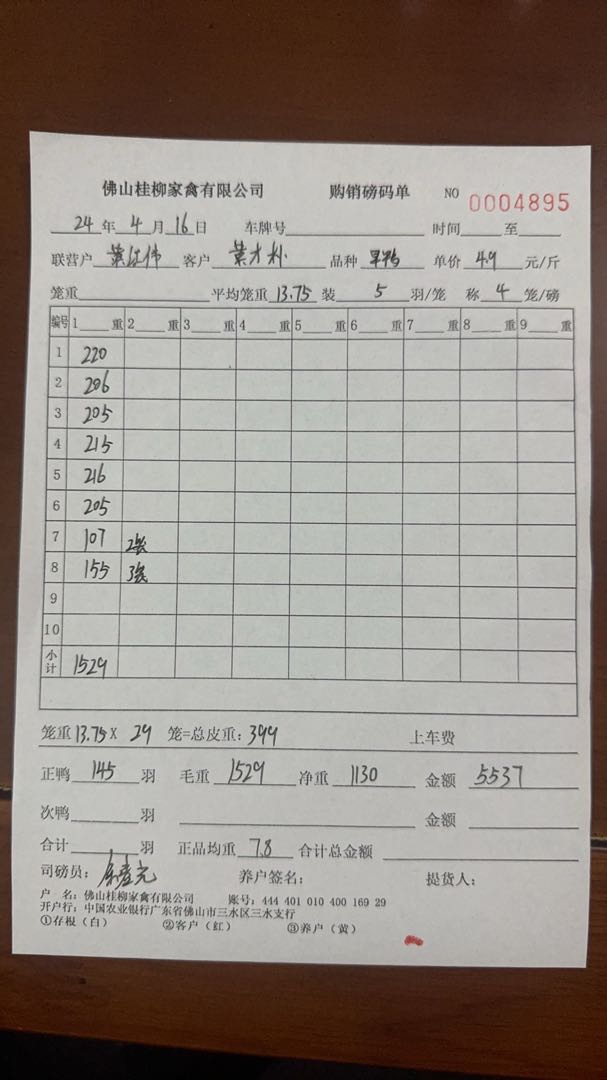 佛山桂柳家禽有限公司 购销磅码单 NO 0004895
24 年 4 月 16 日 车牌号 时间 至
联营户 客户 叶才朴 品种 旱鸭 单价 4.9 元/斤
笼重 平均笼重 13.75 装 5 羽/笼 称 4 笼/磅
编号 1 重 2 重 3 重 4 重 5 重 6 重 7 重 8 重 9 重
1 220
2 206
3 205
4 215
5 216
6 205
7 107 2笼
8 155 3笼
9
10
小计 1529
笼重 13.75 X 29 笼=总皮重: 399 上车费
正鸭 145 羽 毛重 1529 净重 1130 金额 5537
次鸭 羽 金额
合计 羽 正品均重 7.8 合计总金额
司磅员: 养户签名: 提货人:
户 名: 佛山桂柳家禽有限公司 账号: 444 401 010 400 169 29
开户行: 中国农业银行广东省佛山市三水区三水支行
①存根(白) ②客户(红) ③养户(黄)